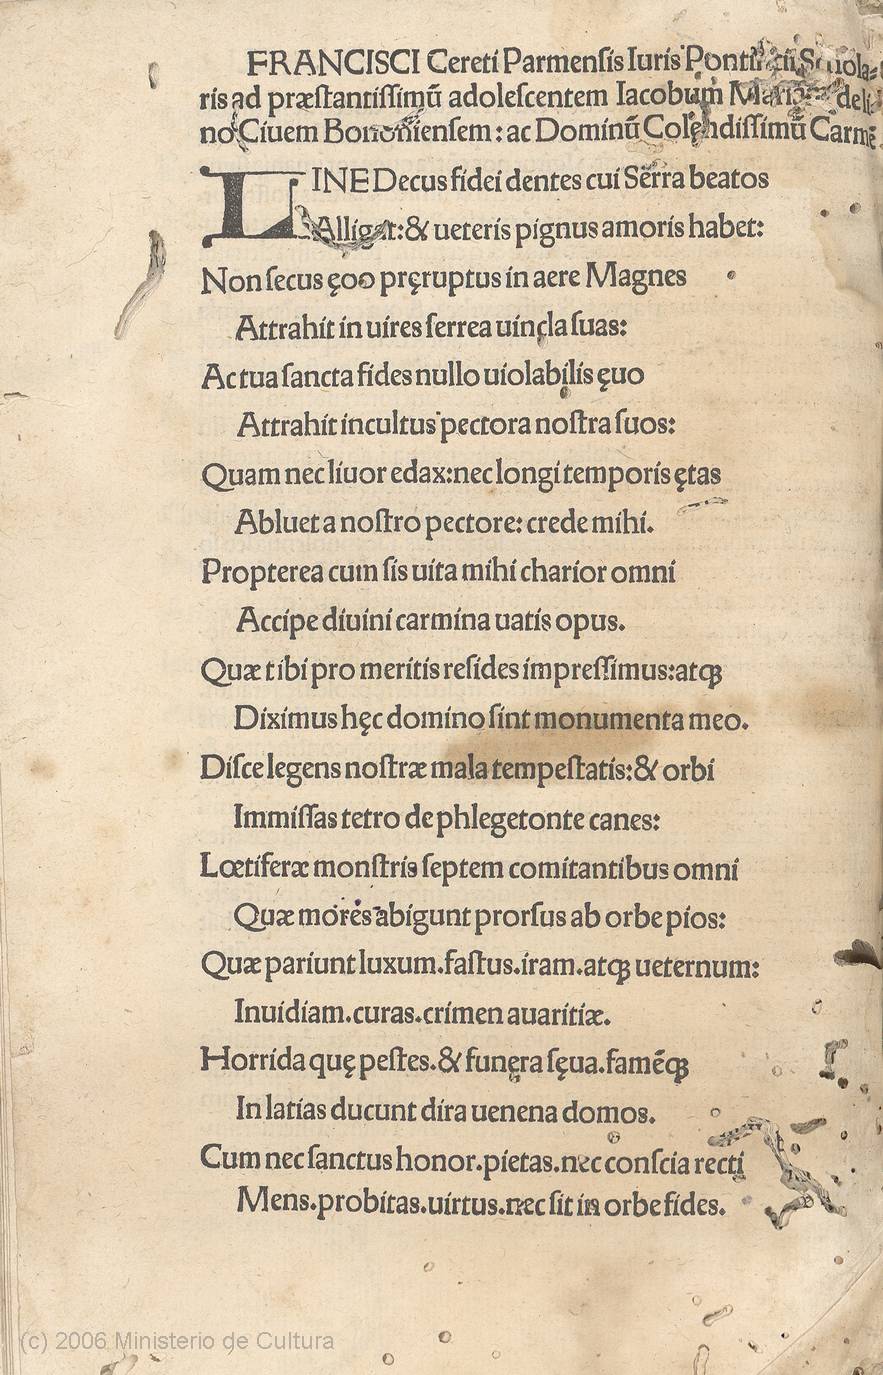 FRANCISCI Cereti Parmenſis Iuris Pontificii Scola-
ris ad præſtantiſſimū adoleſcentem Iacobum
no Ciuem Bononienſem: ac Dominū Colendiſſimū Carmē
LINE Decus fidei dentes cui Serra beatos
Alligat: & ueteris pignus amoris habet:
Non ſecus ęoo pręruptus in aere Magnes
Attrahit in uires ferrea uincla ſuas:
Ac tua ſancta fides nullo uiolabilis ęuo
Attrahit incultus pectora noſtra ſuos:
Quam nec liuor edax: nec longi temporis ętas
Abluet a noſtro pectore: crede mihi.
Propterea cum ſis uita mihi charior omni
Accipe diuini carmina uatis opus.
Quæ tibi pro meritis reſides impreſſimus: atqꝫ
Diximus hęc domino ſint monumenta meo.
Diſce legens noſtræ mala tempeſtatis: & orbi
Immiſſas tetro de phlegetonte canes:
Lœtiferæ monſtris ſeptem comitantibus omni
Quæ mores abigunt prorſus ab orbe pios:
Quæ pariunt luxum. faſtus. iram. atqꝫ ueternum:
Inuidiam. curas. crimen auaritiæ.
Horrida quę peſtes. & funera ſęua. famēqꝫ
In latias ducunt dira uenena domos.
Cum nec ſanctus honor. pietas. nec conſcia recti
Mens. probitas. uirtus. nec ſit in orbe fides.
(c) 2006 Ministerio de Cultura